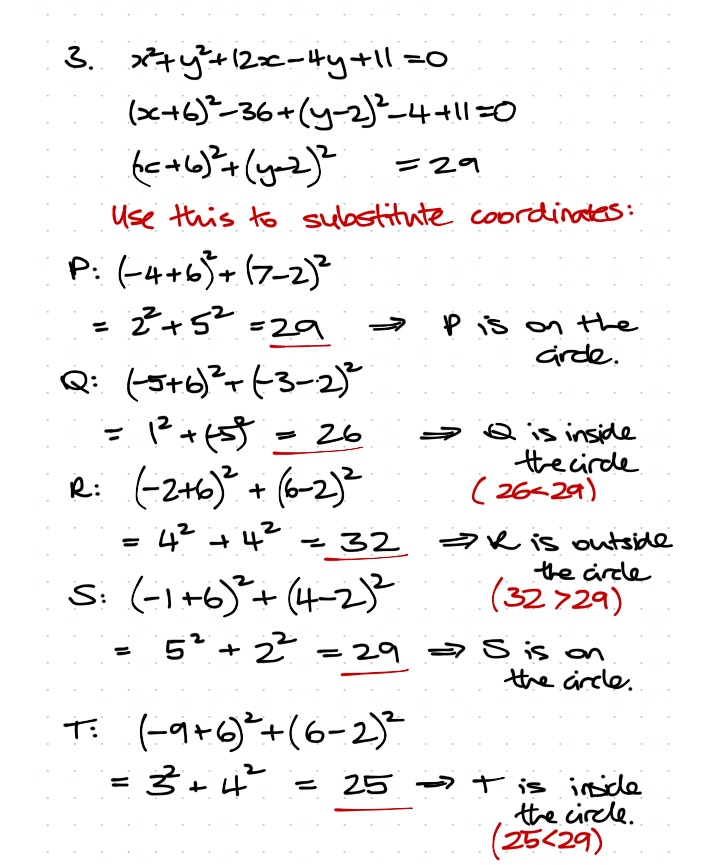 3. x²+y²+12x-4y+11=0
(x+6)²-36+(y-2)²-4+11=0
(x+6)²+(y-2)² =29
Use this to substitute coordinates:
P: (-4+6)²+(7-2)²
= 2²+5² =29 ⇒ P is on the
circle.
Q: (-5+6)²+(-3-2)²
= 1²+(-5)² = 26 ⇒ Q is inside
the circle
R: (-2+6)² + (6-2)² (26<29)
= 4² + 4² = 32 ⇒ R is outside
the circle
S: (-1+6)² + (4-2)² (32>29)
= 5² + 2² = 29 ⇒ S is on
the circle.
T: (-9+6)²+(6-2)²
= 3²+4² = 25 ⇒ T is inside
the circle.
(25<29)